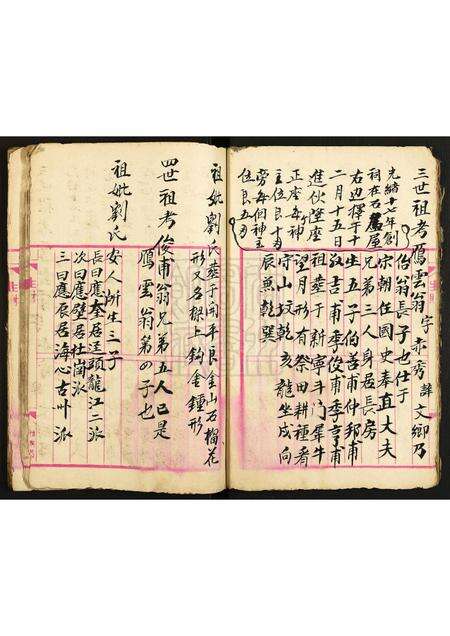 三世祖考鴈雲翁字赤秀諱文鄉乃
伯翁長子也仕于
宋朝任國史奉直大夫
兄弟三人身居長房
生五子伯善甫仲邦甫
敬吉甫季俊甫季亨甫
祖葬于新寧斗門犀牛
望月形有祭田耕種看
守山坟乾亥龍坐戌向
辰兼乾巽
光緒十七年創
祠在石屋
右边擇于十
二月十五日
進伙堂座
正座每神
主位良十
旁每個神主
位良五
祖妣劉氏葬于開平良金山石榴花
形又名樑上鈎金鍾形
四世祖考俊甫翁兄弟五人己是
鴈雲翁第四子也
祖妣劉氏
安人所生三子
長曰應奎居逕頭龍江二派
次曰應壁居杜岡派
三曰應辰居海心古州派